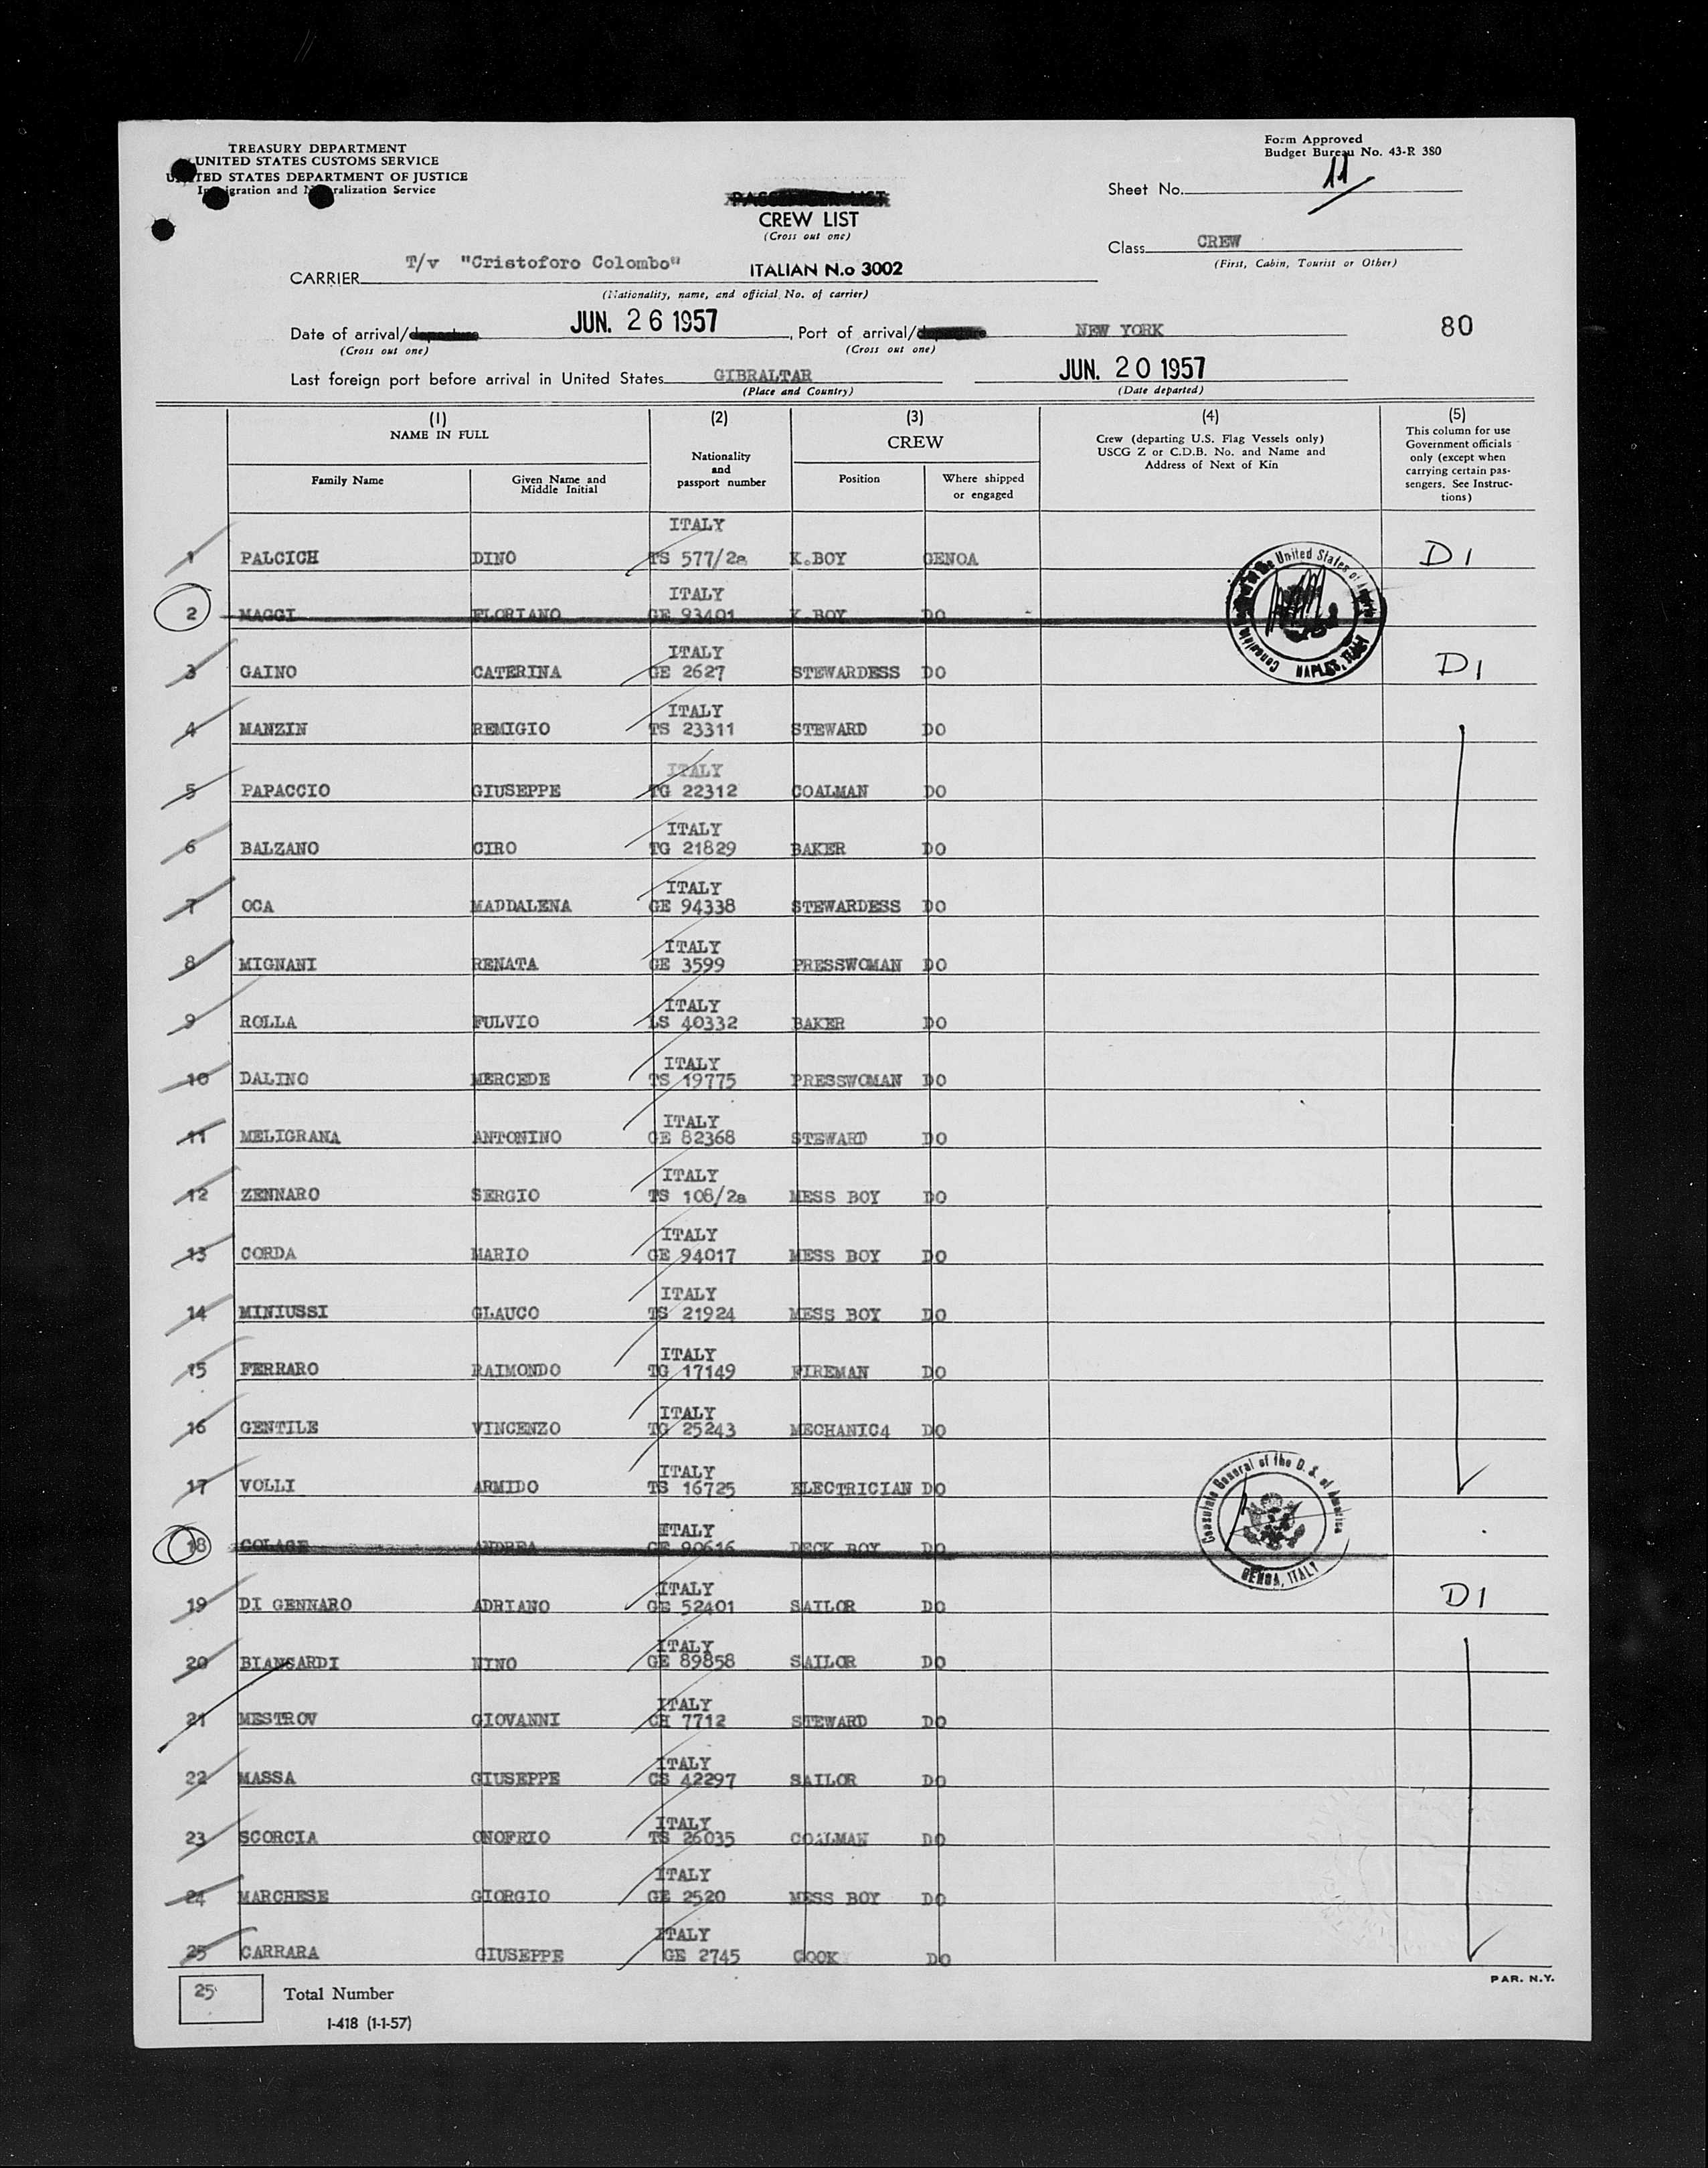 TREASURY DEPARTMENT
UNITED STATES CUSTOMS SERVICE
UNITED STATES DEPARTMENT OF JUSTICE
Immigration and Naturalization Service
Form Approved
Budget Bureau No. 43-R 380
Sheet No. 11
PASSENGER LIST
CREW LIST
(Cross out one)
Class CREW
(First, Cabin, Tourist or Other)
CARRIER T/v "Cristoforo Colombo" ITALIAN N.o 3002
(Nationality, name, and official No. of carrier)
Date of arrival/departure JUN. 26 1957, Port of arrival/departure NEW YORK 80
(Cross out one) (Cross out one)
Last foreign port before arrival in United States GIBRALTAR JUN. 20 1957
(Place and Country) (Date departed)
(1) NAME IN FULL
Family Name
Given Name and Middle Initial
(2)
Nationality and passport number
(3)
CREW
Position
Where shipped or engaged
(4)
Crew (departing U.S. Flag Vessels only)
USCG Z or C.D.B. No. and Name and
Address of Next of Kin
(5)
This column for use
Government officials
only (except when
carrying certain pas-
sengers. See Instruc-
tions)
ITALY
1 PALCICH DINO TS 577/2a K.BOY GENOA D1
ITALY
2 MAGGI FLORIANO GE 93401 K.BOY DO
ITALY
3 GAINO CATERINA GE 2627 STEWARDESS DO D1
ITALY
4 MANZIN REMIGIO TS 23311 STEWARD DO
ITALY
5 PAPACCIO GIUSEPPE TG 22312 COALMAN DO
ITALY
6 BALZANO CIRO TG 21829 BAKER DO
ITALY
7 OCA MADDALENA GE 94338 STEWARDESS DO
ITALY
8 MIGNANI RENATA GE 3599 PRESSWOMAN DO
ITALY
9 ROLLA FULVIO LS 40332 BAKER DO
ITALY
10 DALINO MERCEDE TS 19775 PRESSWOMAN DO
ITALY
11 MELIGRANA ANTONINO GE 82368 STEWARD DO
ITALY
12 ZENNARO SERGIO TS 108/2a MESS BOY DO
ITALY
13 CORDA MARIO GE 94017 MESS BOY DO
ITALY
14 MINIUSSI GLAUCO TS 21924 MESS BOY DO
ITALY
15 FERRARO RAIMONDO TG 17149 FIREMAN DO
ITALY
16 GENTILE VINCENZO TG 25243 MECHANIC4 DO
ITALY
17 VOLLI ARMIDO TS 16725 ELECTRICIAN DO
ITALY
18 COLAGE ANDREA GE 90616 DECK BOY DO
ITALY
19 DI GENNARO ADRIANO GE 52401 SAILOR DO D1
ITALY
20 BIANSARDI NINO GE 89858 SAILOR DO
ITALY
21 MESTROV GIOVANNI CH 7712 STEWARD DO
ITALY
22 MASSA GIUSEPPE CS 42297 SAILOR DO
ITALY
23 SCORCIA ONOFRIO TS 26035 COALMAN DO
ITALY
24 MARCHESE GIORGIO GE 2520 MESS BOY DO
ITALY
25 CARRARA GIUSEPPE GE 2745 COOK DO
Consulate General of the United States of America
NAPLES, ITALY
Consulate General of the U. S. of America
GENOA, ITALY
PAR. N.Y.
25 Total Number
I-418 (1-1-57)